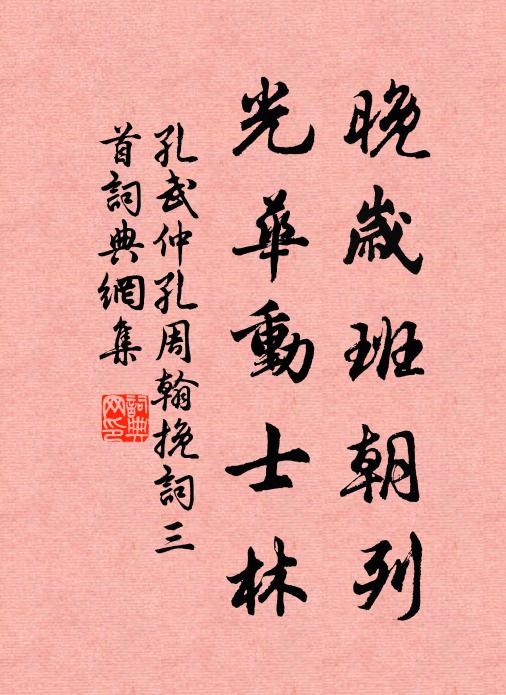 晚歲班朝列
光華動士林
孔武仲孔周翰挽詞三
首詞典網集
詞典
网印